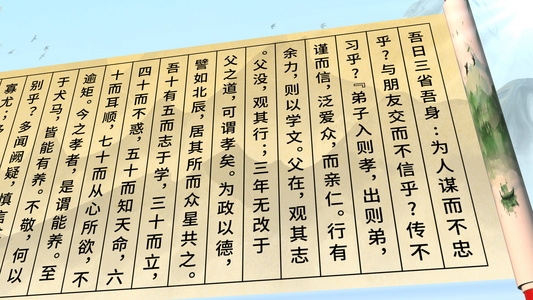 吾日三省吾身:为人谋而不忠
乎?与朋友交而不信乎?传不
习乎?『弟子入则孝,出则弟,
谨而信,泛爱众,而亲仁。行有
余力,则以学文。父在,观其志
。父没,观其行;三年无改于
父之道,可谓孝矣。为政以德,
譬如北辰,居其所而众星共之。
吾十有五而志于学,三十而立,
四十而不惑,五十而知天命,六
十而耳顺,七十而从心所欲,不
逾矩。今之孝者,是谓能养。至
于犬马,皆能有养。不敬,何以
别乎?多闻阙疑,慎言
寡尤;多